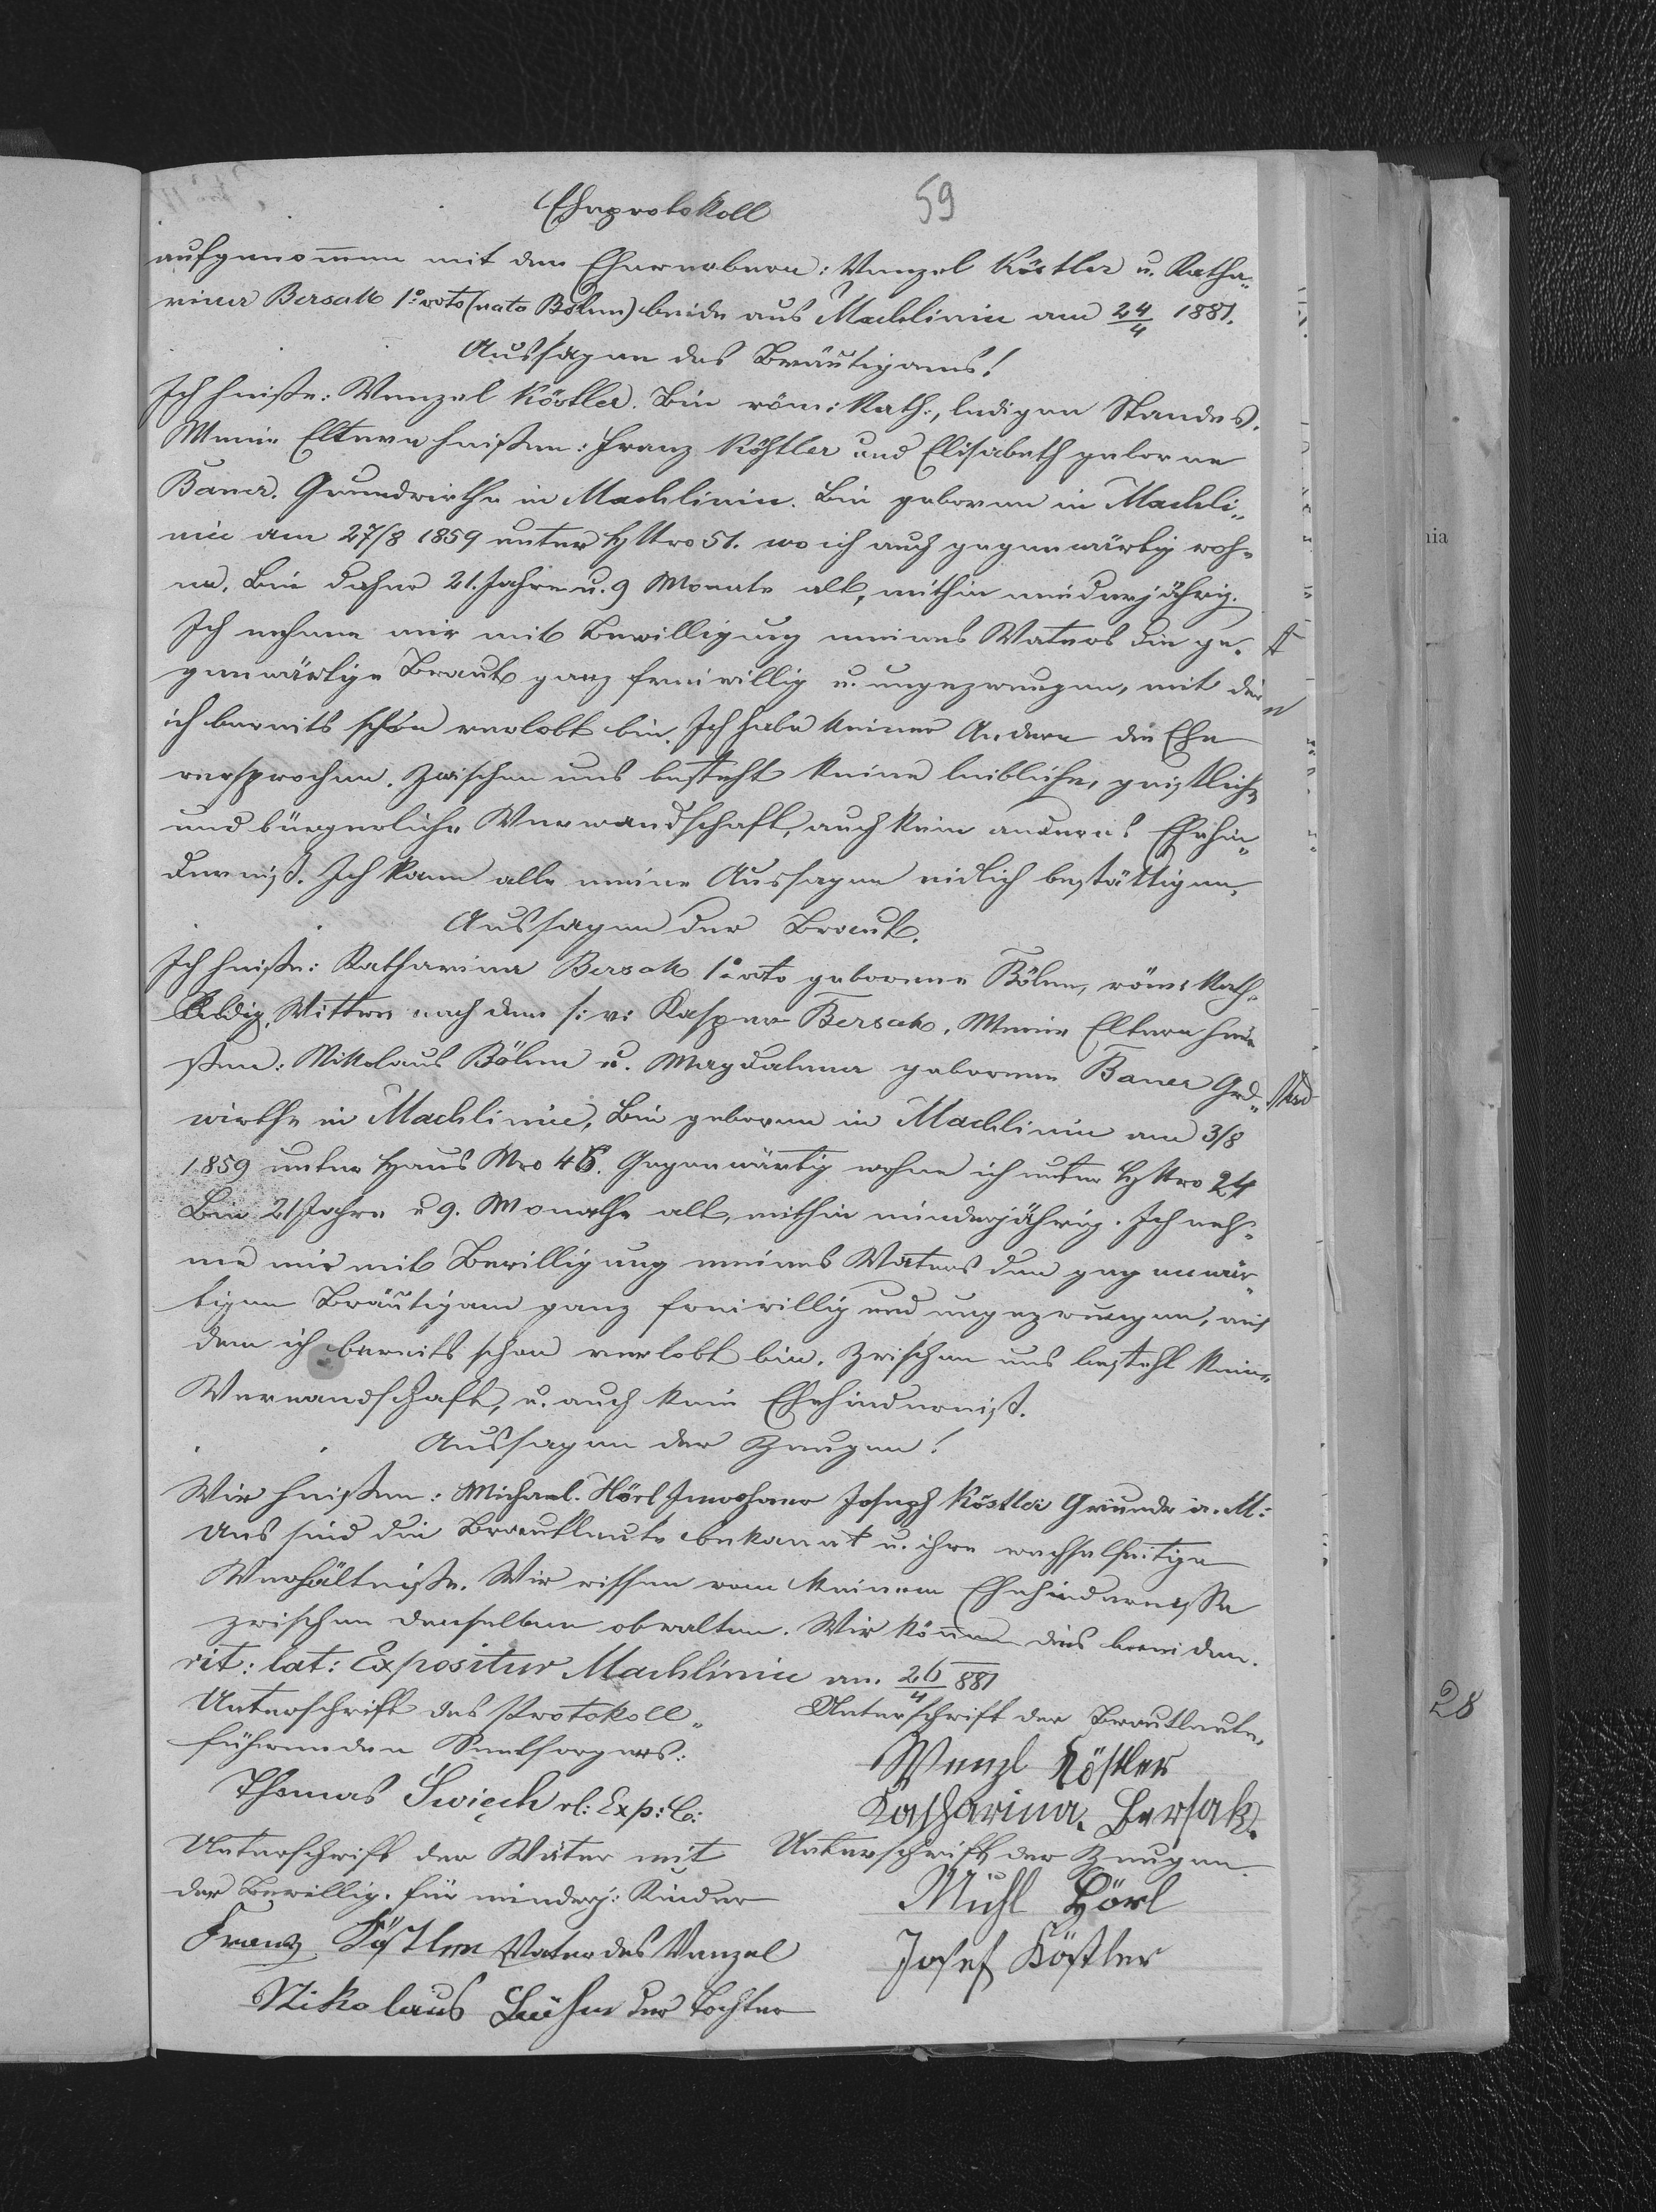 Eheprotokoll
59
aufgenommen mit den Ehewerbern: Venzel Köstler u. Katha„
rina Bersak 1º: voto (nata Böhm) beide aus Machliniec am 24/4 1881.
Aussagen des Bräutigams!
Ich heiße: Wenzel Köstler. Bin röm: Kath:, ledigen Standes.
Meine Eltern heißen: Franz Köstler und Elisabeth geborne
Baner. Grundwirthe in Machliniec. Bin geboren in Machli„
niec am 27/8 1859 unter H Nro 51. wo ich auch gegenwärtig woh„
ne. Bin daher 21. Jahre u. 9 Monate alt, mithin minderjährig.
Ich nehme mir mit Bewilligung meines Vaters die ge„
genwärtige Braut ganz freiwillig u. ungezwungen, mit der
ich bereits schon verlobt bin. Ich habe keiner Andern die Ehe
versprochen. Zwischen uns besteht keine leibliche, geistliche
und bürgerliche Verwandschaft, auch kein anderes Ehehin„
derniß. Ich kann alle meine Aussagen eidlich bestättigen.
Aussagen der Braut.
Ich heiße: Katharina Bersak 1º voto geborene Böhm, röm: Kath:
Wittwe nach dem s: v: Kasper Bersak. Meine Eltern hei„
ßen: Nikolaus Böhm u. Magdalena geborene Baner Grd„
wirthe in Machliniec, Bin geboren in Machliniec am 3/8
1859 unter Haus Nro 46. Gegenwärtig wohne ich unter H Nro 24
Bin 21 Jahre u 9. Monathe alt, mithin minderjährig. Ich neh„
me mir mit Bewilligung meines Vaters den gegenwär„
tigen Bräutigam ganz freiwillig und ungezwungen, mit
dem ich bereits schon verlobt bin. Zwischen uns besteht keine
Verwandschaft, u. auch kein Ehehinderniß.
Aussagen der Zeugen!
Wir heißen: Michael Hörl Inwohner Joseph Köstler Grundw in M:
Uns sind die Brautleute bekannt u. ihre wechselseitige
Verhältniße. Wir wissen vom keinem Ehehinderniße
zwischen denselben obwalten. Wir können dies beeiden.
rit: lat: Expositur Machliniec am 26/4 881
Unterschrift des Protokoll„
führenden Seelsorgers:
Thomas Święch rl: Exp: C:
Unterschrift der Brautleute.
Wenzl Köstler
Katharina Bersak.
Unterschrift der Väter mit
der Bewillig. für minderj: Kinder
Franz Köstler Vater des Venzel
Nikolaus Böhm der Tochter
Unterschrift der Zeugen.
Michl Hörl
Josef Köstler
nia
28